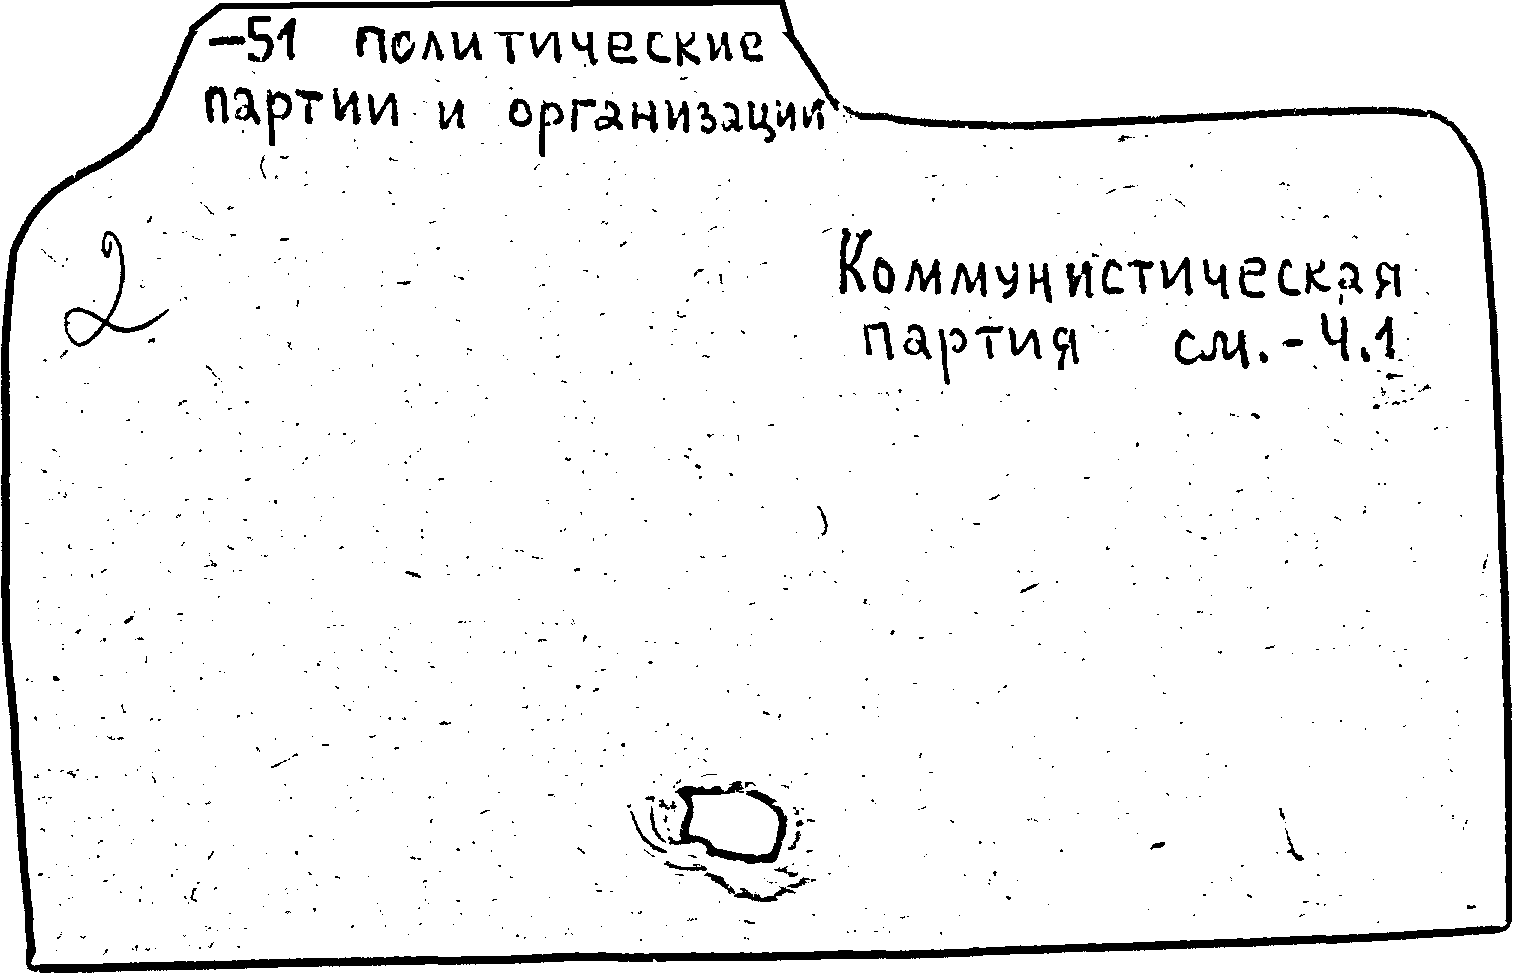 -51 политические
партии и организации
2
Коммунистическая
партия см.-Ч.1